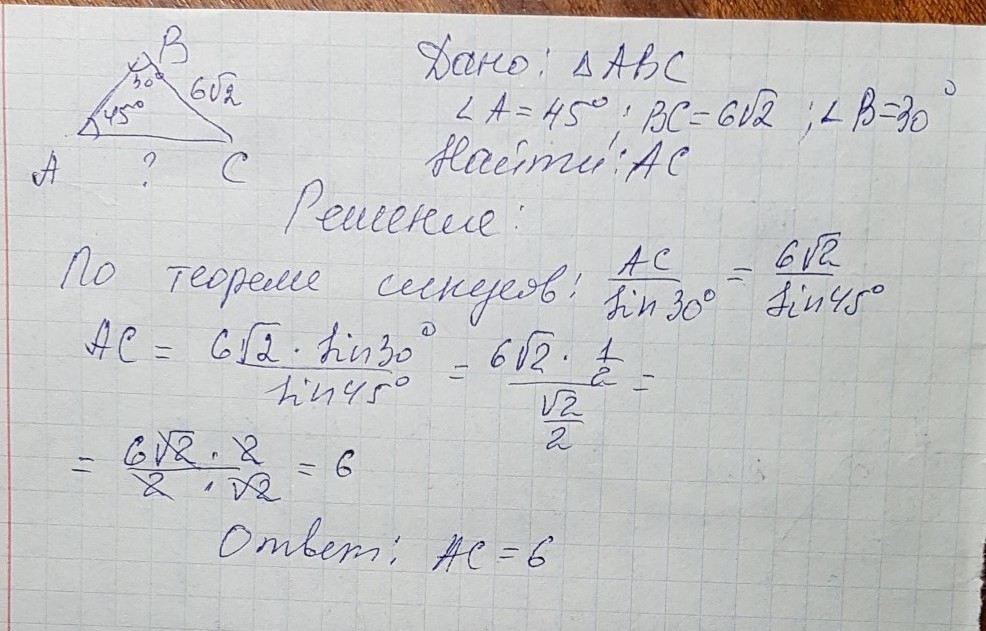 B
30°
6√2
45°
A
?
C
Дано: △ABC
∠A = 45°; BC = 6√2; ∠B = 30°
Найти: AC
Решение:
По теореме синусов: AC/sin 30° = 6√2/sin 45°
AC = 6√2 · sin 30°/sin 45° = (6√2 · 1/2)/(√2/2) =
= 6√2 · 2/2 · √2 = 6
Ответ: AC = 6